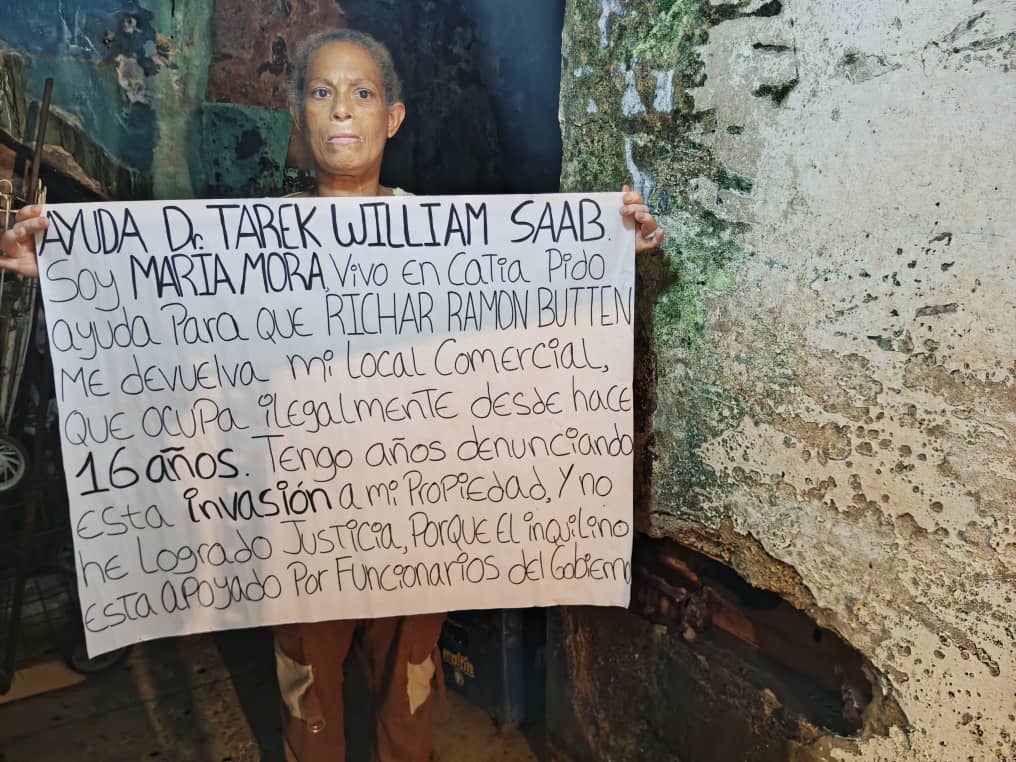 AYUDA Dr. TAREK WILLIAM SAAB.
Soy MARIA MORA, Vivo en Catia Pido
ayuda Para QUE RICHAR RAMON BUTTEN
ME DEVUELVA mi local Comercial,
QUE OCUPA ilegalmente desde hace
16 años. Tengo años denunciando
Esta invasión a mi Propiedad, Y no
he Logrado Justicia, Porque El inquilino
Esta apoyado Por Funcionarios del Gobierno